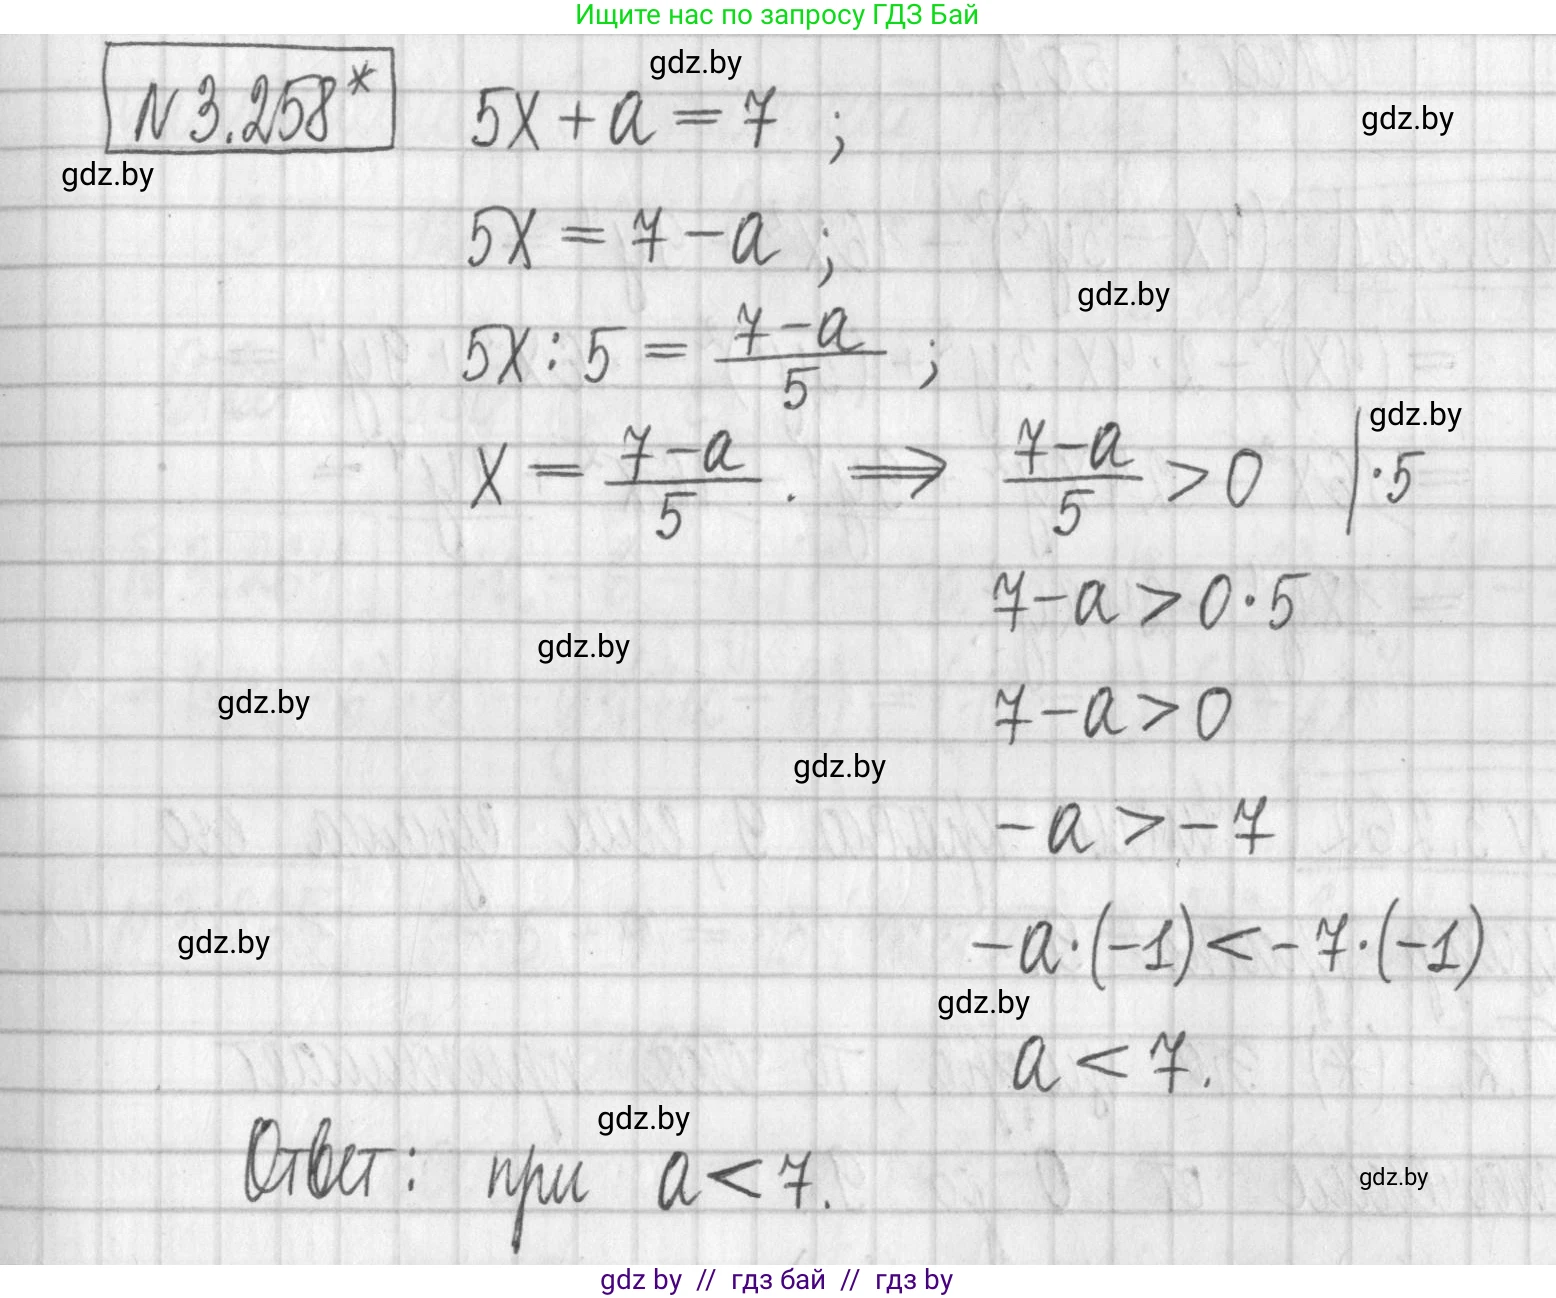 Ищите нас по запросу ГДЗ Бай
gdz.by
N 3.258*
5x + a = 7 ;
gdz.by
gdz.by
5x = 7 - a ;
gdz.by
5x : 5 = (7-a)/5 ;
gdz.by
x = (7-a)/5 . ⟹ (7-a)/5 > 0 | · 5
7 - a > 0 · 5
gdz.by
gdz.by
7 - a > 0
gdz.by
- a > - 7
gdz.by
- a · (-1) < - 7 · (-1)
gdz.by
a < 7.
gdz.by
Ответ: при a < 7.
gdz.by
gdz by // гдз бай // гдз by